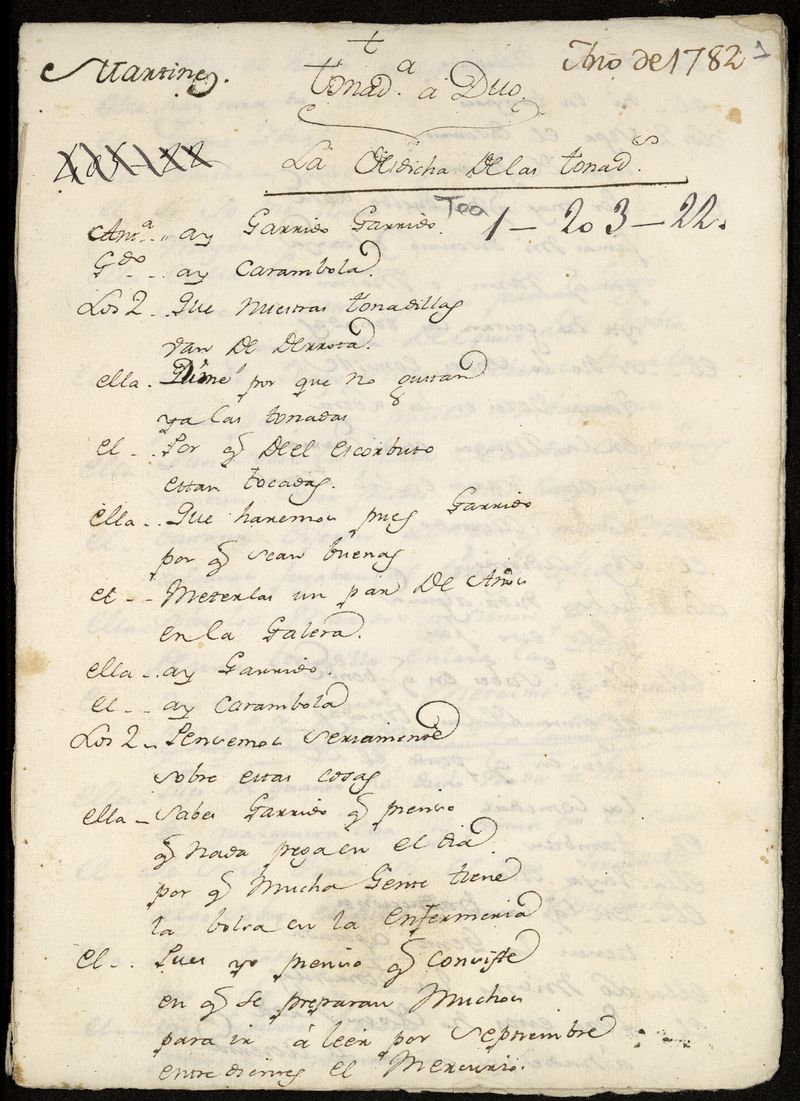 t
Martinez. tonad.ª a Duo. Año de 1782 1
La Desdicha de las tonad.s
Tea 1 - 203 - 22.
Ant.ª .. ay Garrido Garrido.
G.do - .. ay Carambola.
Los 2 . Que nuestras tonadillas
van de derrota.
ella . Dime por que no gustan
ya las tonadas
el - . Por q.e de el escorbuto
estan tocadas.
ella - . Que haremos pues Garrido
por q.e sean buenas
el - - Meterlas un par de Años
en la Galera.
ella - . ay Garrido.
el - . - ay Carambola
Los 2 - Pensemos seriamente
sobre estas cosas
ella - Sabes Garrido q.e pienso
q.e nada pega en el dia
por q.e Mucha Gente tiene
la bolsa en la enfermeria
el - . Pues yo pienso q.e consiste
en q.e se preparan Muchos
para ir á leer por Septiembre
entre dientes el Mercurio.